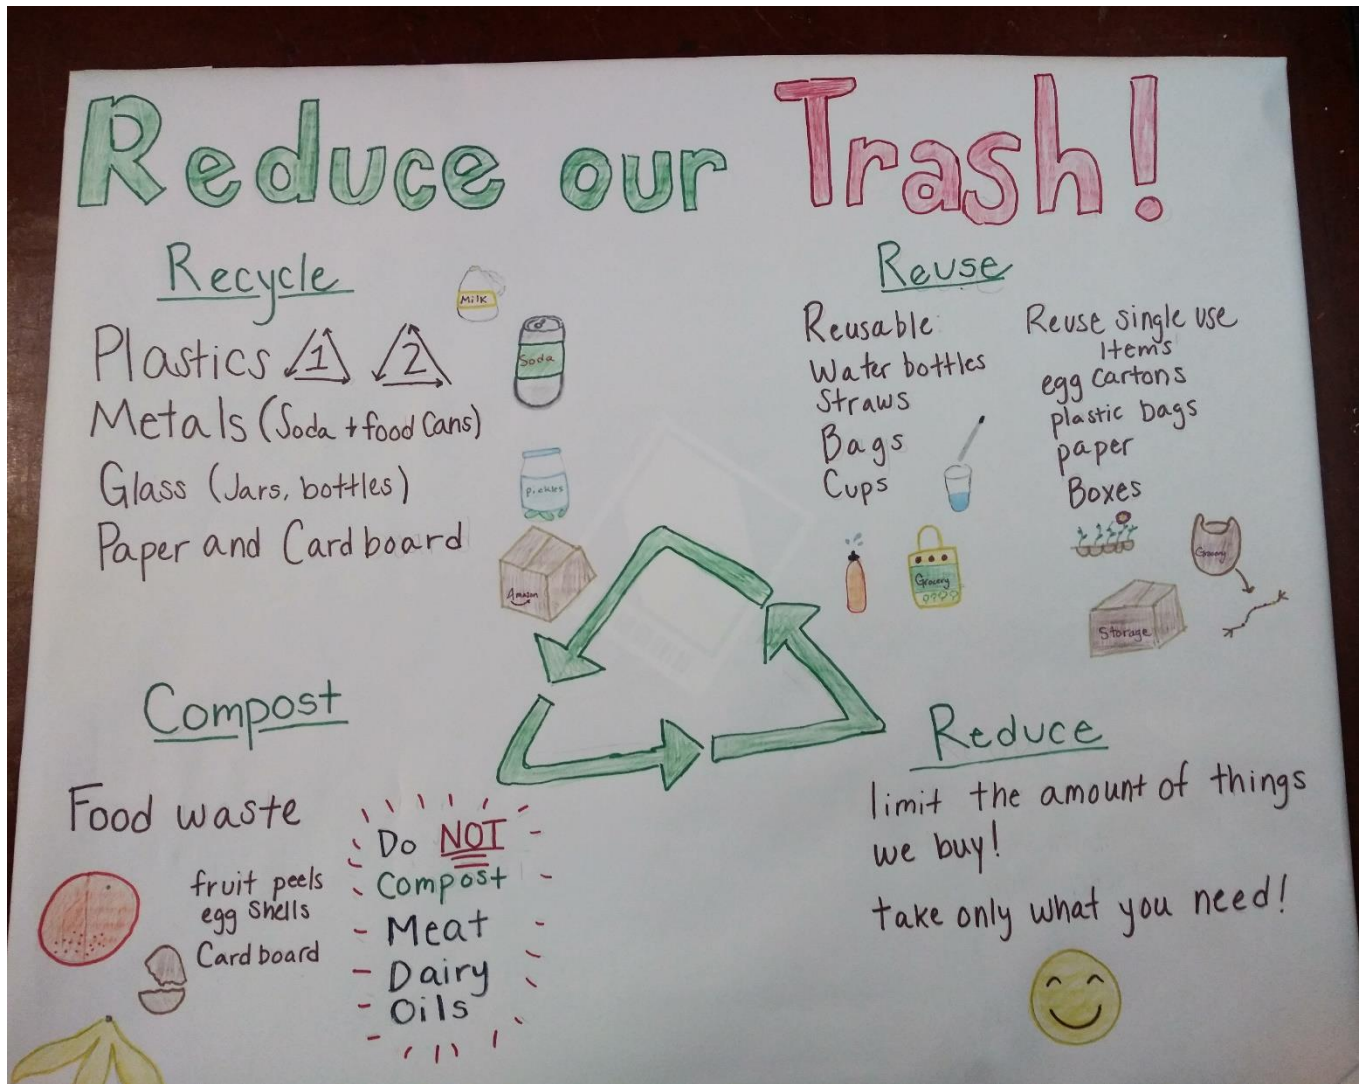 Reduce our Trash!
Recycle
Plastics 1 2
Metals (Soda + food Cans)
Glass (Jars, bottles)
Paper and Cardboard
Milk
Soda
Pickles
Amazon
Reuse
Reusable:
Water bottles
Straws
Bags
Cups
Grocery
Reuse single use
Items
egg Cartons
plastic bags
paper
Boxes
Grocery
Storage
Compost
Food waste
fruit peels
egg shells
Cardboard
Do NOT
Compost
Meat
Dairy
Oils
Reduce
limit the amount of things
we buy!
take only what you need!